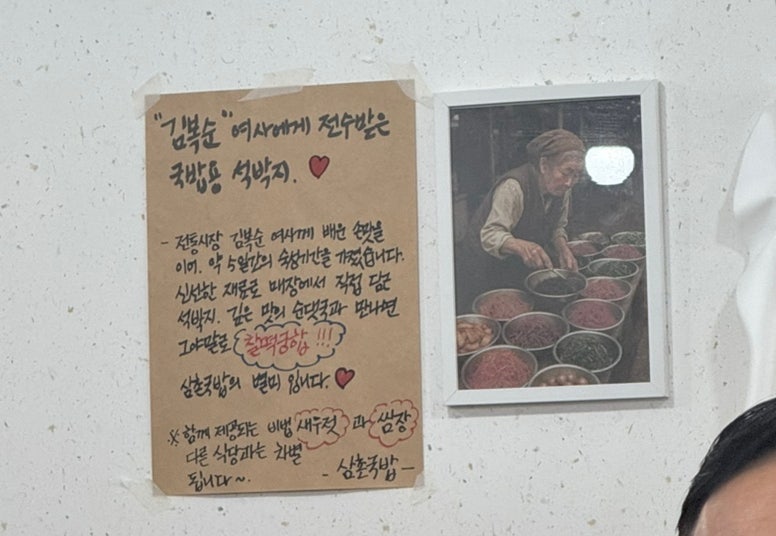 "김복순" 여사에게 전수받은
국밥용 석박지. ♥
- 전통시장 김복순 여사께 배운 손맛을
이어. 약 5일간의 숙성기간을 가졌습니다.
신선한 재료로 매장에서 직접 담근
석박지. 깊은 맛의 순댓국과 만나면
그야말로 찰떡궁합!!!
삼촌국밥의 별미 입니다. ♥
※ 함께 제공되는 비법 새우젓 과 쌈장
다른 식당과는 차별
됩니다~.
- 삼촌국밥 -